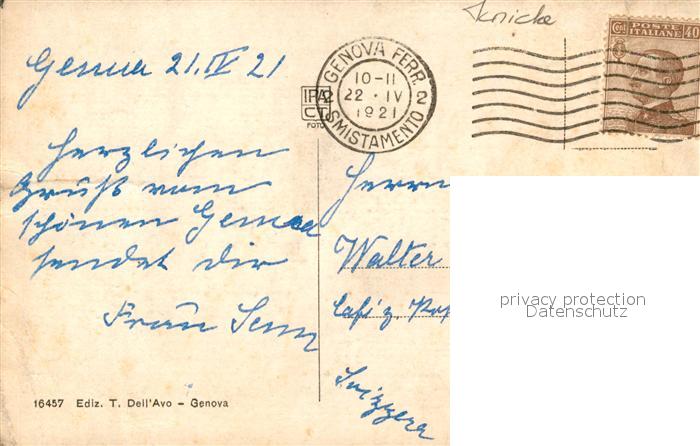 Genua 21.IV 21
GENOVA FERR. 2
10-11
22 · IV
1921
2 SMISTAMENTO
POSTE
ITALIANE
Cent 40
IPA
CT
FOTO
Herzlichen
Gruß vom
schönen Genua
sendet dir
Herrn
Walter
Svizzera
privacy protection
Datenschutz
16457 Ediz. T. Dell'Avo – Genova